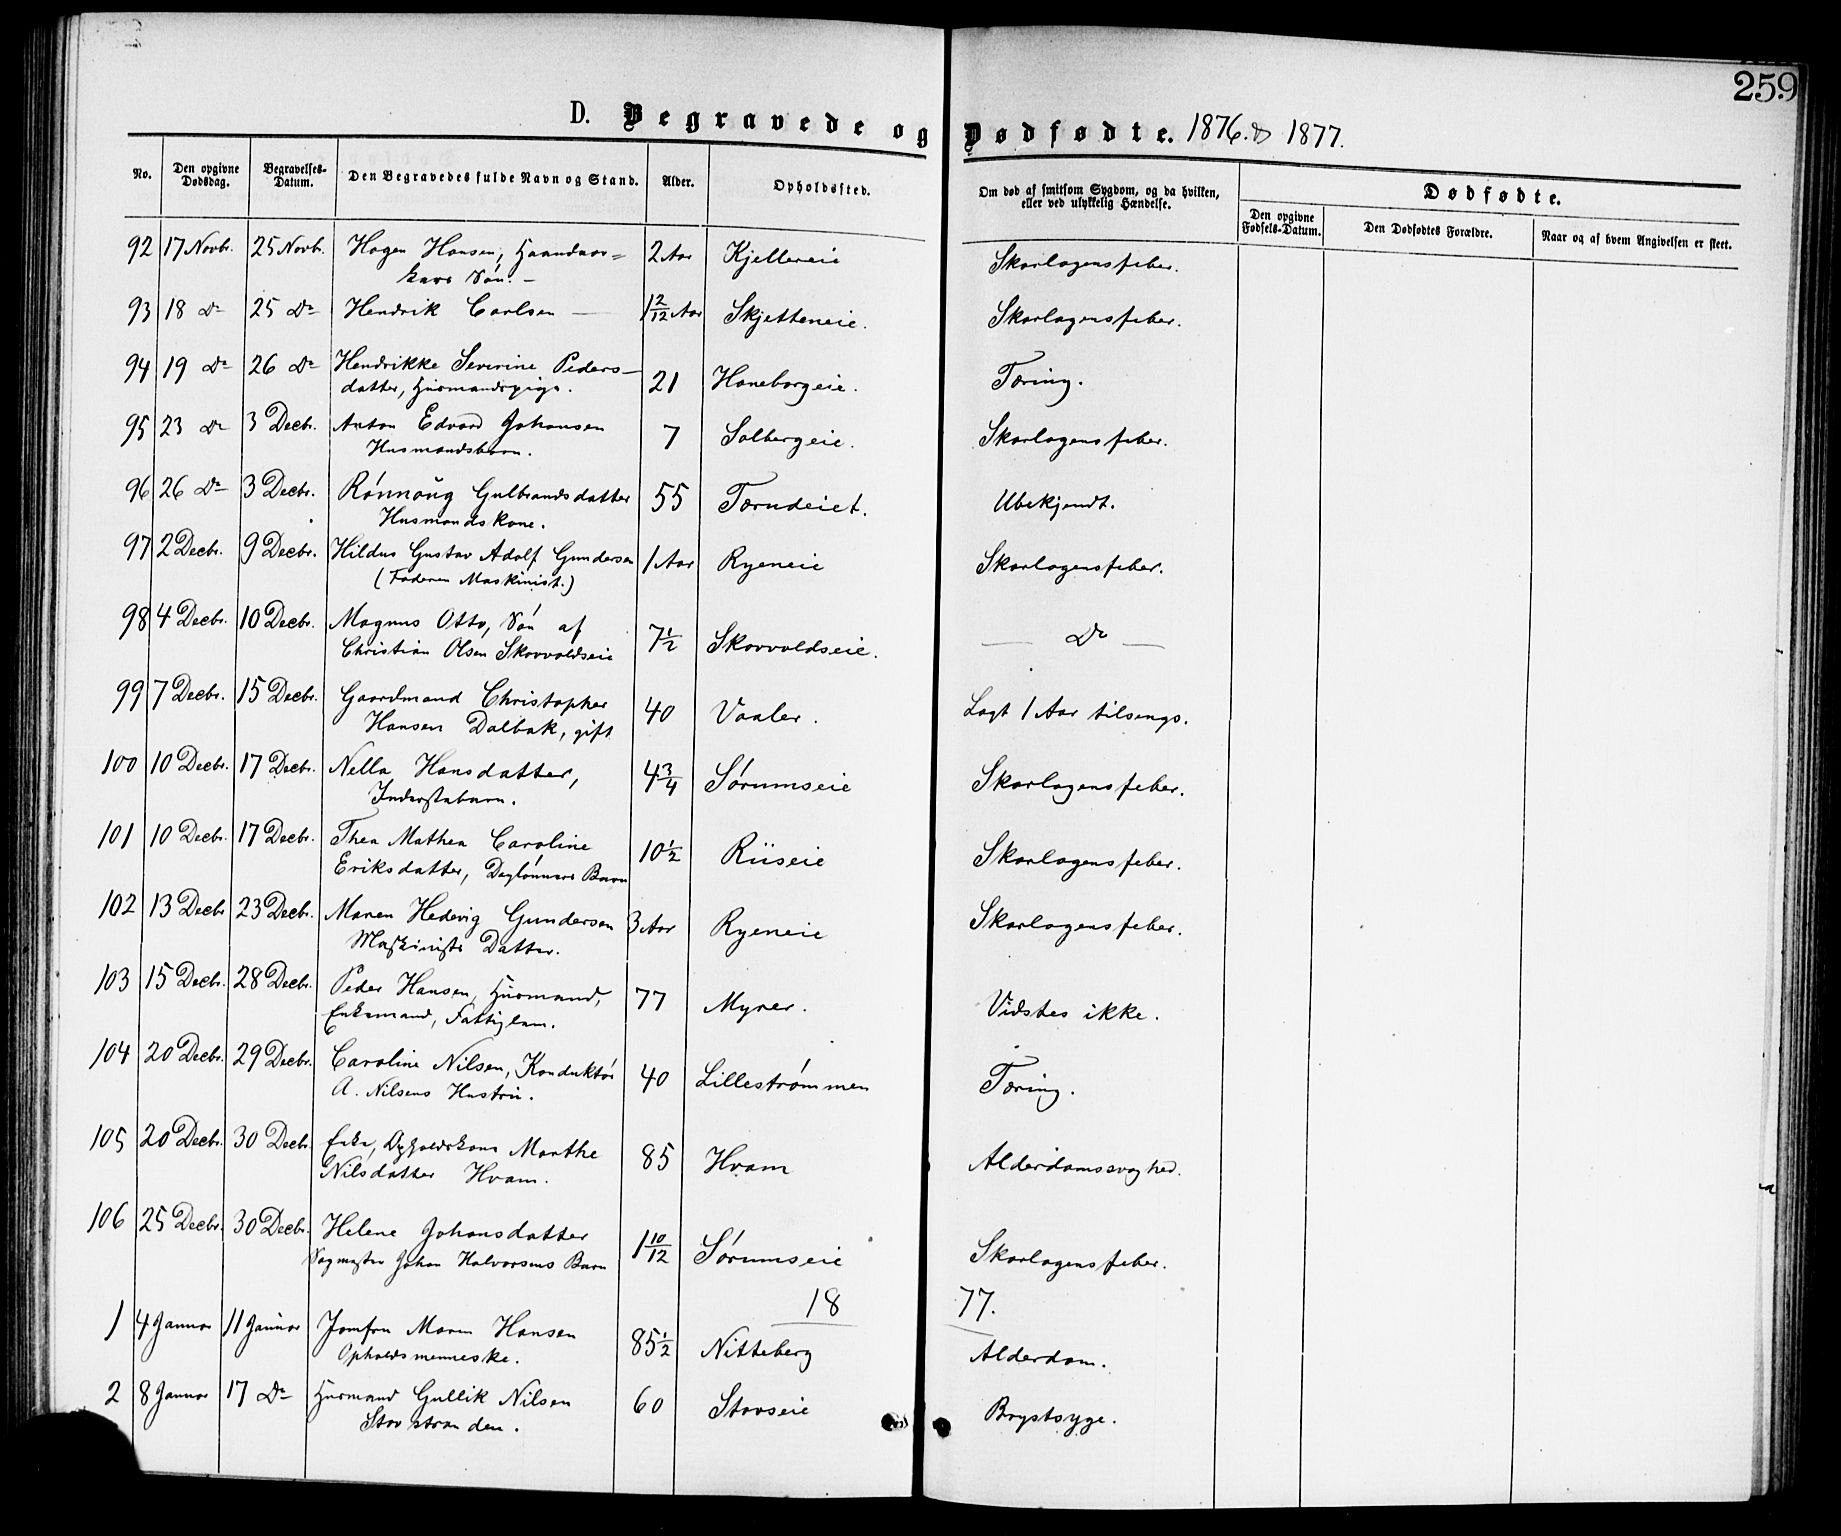 259
D. Begravede og Dødfødte. 1876. & 1877.
No. Den opgivne Dødsdag. Begravelses-Datum. Den Begravedes fulde Navn og Stand. Alder. Opholdssted. Om død af smitsom Sygdom, og da hvilken, eller ved ulykkelig Hændelse. Dødfødte.
Den opgivne Fødsels-Datum. Den Dødfødtes Forældre. Naar og af hvem Angivelsen er skeet.
92 17 Novbr. 25 Novbr. Hagen Hansen, Haandvær= 2 Aar Kjellereie Skarlagensfeber.
kers Søn. —
93 18 Do 25 Do Hendrik Carlsen — 1 2/12 Aar Skjetteneie. Skarlagensfeber.
94 19 Do 26 Do Hendrikke Severine Peders- 21 Haneborgeie. Tæring.
datter, Husmandspige.
95 23 Do 3 Decbr. Anton Edvard Johansen 7 Solbergeie. Skarlagensfeber.
Husmandsbarn.
96 26 Do 3 Decbr. Rönnoug Gulbrandsdatter 55 Tærudeiet. Ubekjendt.
Husmandskone.
97 2 Decbr. 9 Decbr. Hildus Gustav Adolf Gundersen 1 Aar Ryeneie Skarlagensfeber.
(Faderen Maskinist.)
98 4 Decbr. 10 Decbr. Magnus Otto, Søn af 7 1/2 Skovvoldseie. — Do —
Christian Olsen Skovvoldseie
99 7 Decbr. 15 Decbr. Gaardmand Christopher 40 Vaaler. Lagt 1 Aar tilsengs.
Hansen Dalbak, gift
100 10 Decbr. 17 Decbr. Nella Hansdatter, 4 3/4 Sørumseie Skarlagensfeber.
Inderstebarn.
101 10 Decbr. 17 Decbr. Thea Mathea Caroline 10 1/2 Riiseie Skarlagensfeber.
Eriksdatter, Daglønners Barn
102 13 Decbr 23 Decbr. Maren Hedevig Gundersen 3 Aar Ryeneie Skarlagensfeber.
Maskinists Datter.
103 15 Decbr. 28 Decbr. Peder Hansen, Husmand, 77 Myrer. Vidstes ikke.
Enkemand, Fattiglem.
104 20 Decbr. 29 Decbr. Caroline Nilsen, Konduktør 40 Lillestrømmen Tæring.
A. Nilsens Hustru.
105 20 Decbr. 30 Decbr. Enke, Opholdskone Marthe 85 Hvam Alderdomssvaghed.
Nilsdatter Hvam.
106 25 Decbr. 30 Decbr. Helene Johansdatter 1 10/12 Sørumseie Skarlagensfeber.
Sagmester Johan Halvorsens Barn
18 77.
1 4 Januar 11 Januar Jomfru Maren Hansen 85 1/2 Nitteberg Alderdom.
Opholdsmenneske.
2 8 Januar 17 Do Husmand Gullik Nilsen 60 Stavseie Brystsyge.
Stavstranden.